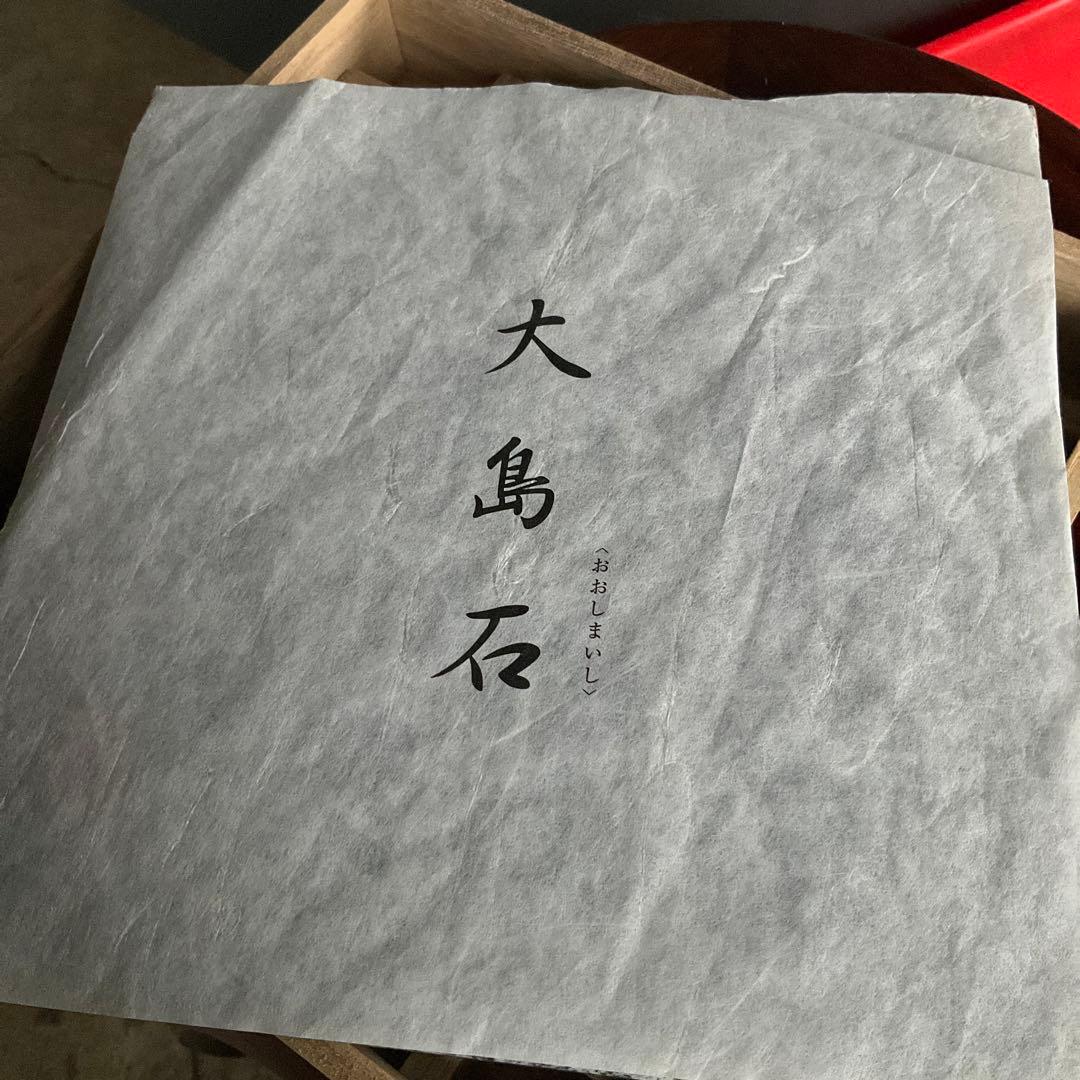 大島石
〈おおしまいし〉